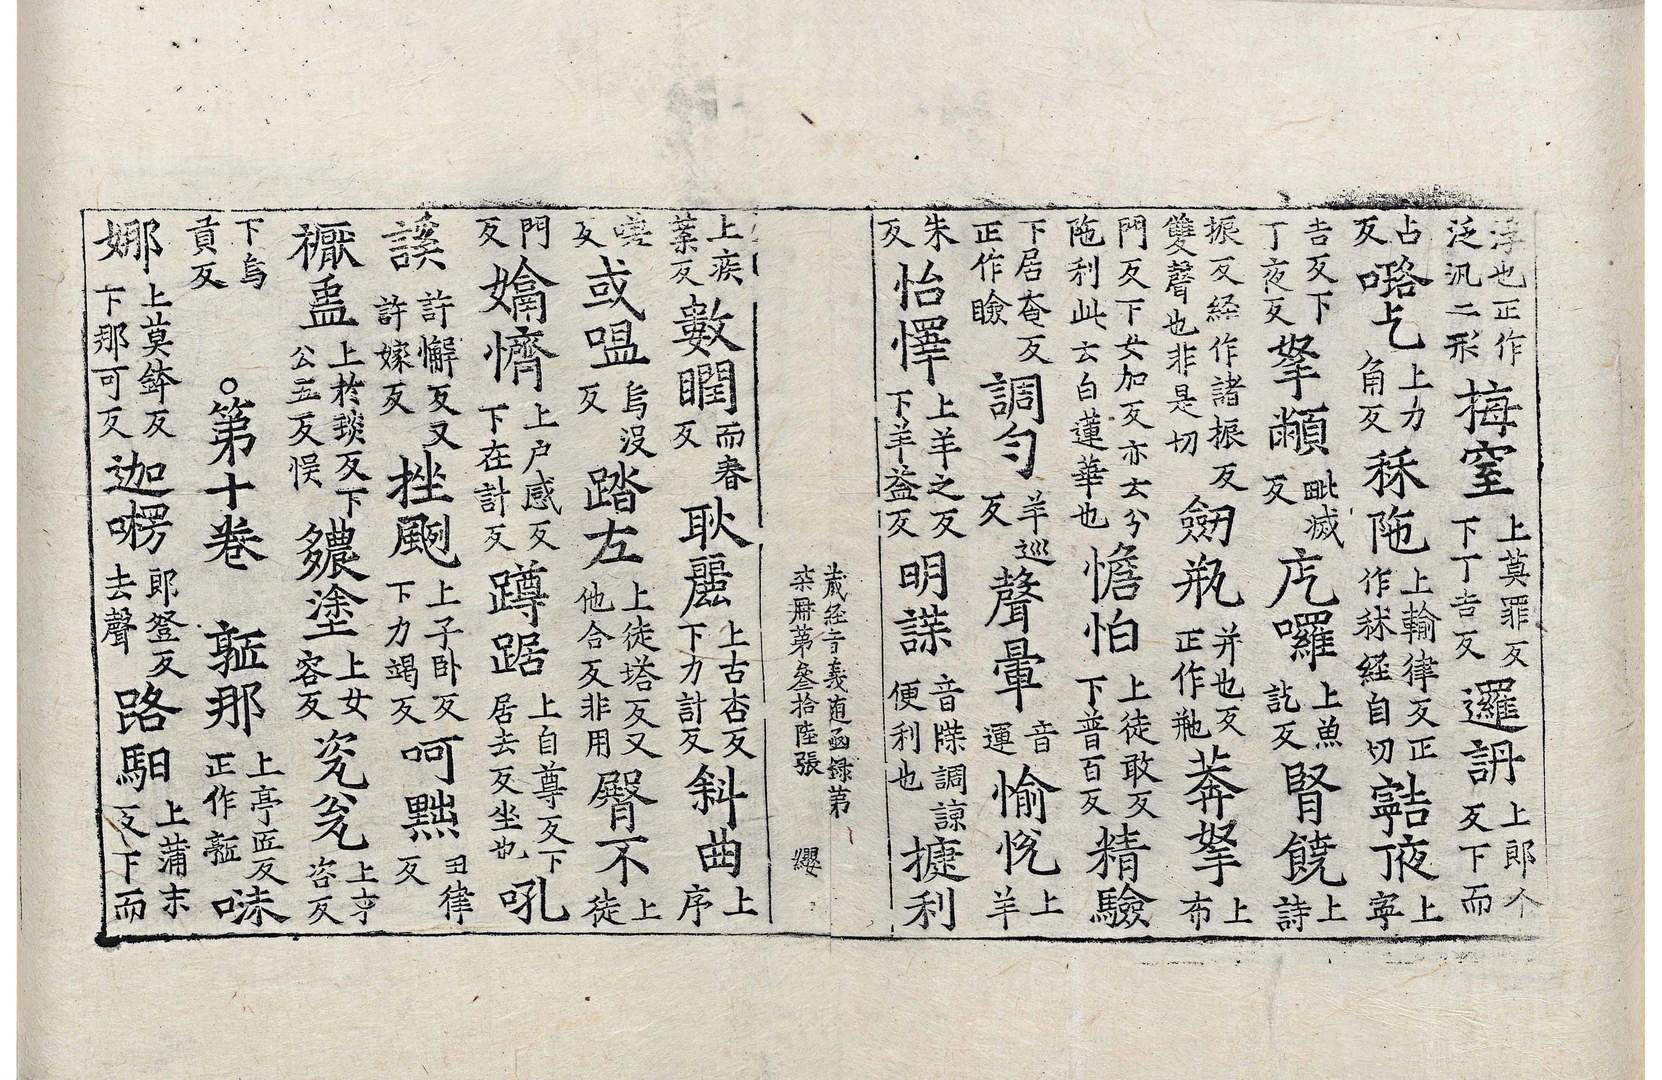 浮也正作泛汎二形梅窒上莫罪反下丁吉反邏詽上郎个反下而
占反㗉上上力角反秝陁上輸律反正作秫経自切譶𠯋上寧
吉反下丁夜反拏顭毗滅反㐹囉上魚訖反腎饒上詩
振反経作諸振反雙聲也非是切劒瓶并也反正作瓶莾拏上布
門反下女加反亦云兮陁利此云白蓮華也憺怕上徒敢反下普百反精驗
下居奄反正作瞼調匀羊巡反聲暈音運愉恱上羊
朱反怡懌上羊之反下羊益反明諜音牒調諒便利也揵利
蔵経音義随函録第柒冊第叁拾陸張 纓
上疾葉反數瞤而春反耿麗上古杏反下力計反斜曲上序
嗟反或嗢烏沒反踏左上徒塔反又他合反非用臀不上徒
門反㜞懠上户感反下在計反蹲踞上自尊反下居去反坐也吼
謑許懈反又許嫁反挫颲上子卧反下力竭反呵黜丑律反
禰蠱上於琰反下公五反悮䢉塗上女容反㚇㚇上亨咨反
下烏貢反 〇第十卷 䩠那上亭匹反正作䩠唻
娜上莫鉢反下那可反迦㗚郎登反去聲路馹上蒲末反下而